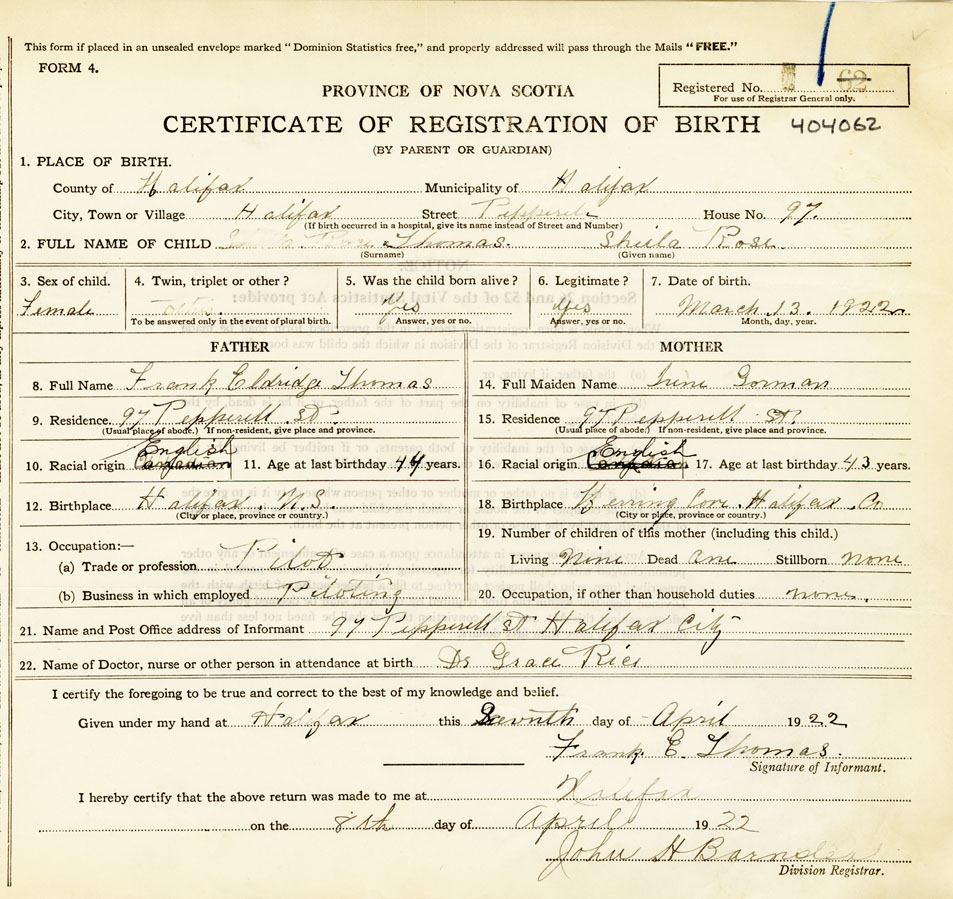 This form if placed in an unsealed envelope marked "Dominion Statistics free," and properly addressed will pass through the Mails "FREE."
FORM 4.
Registered No. 62
For use of Registrar General only.
PROVINCE OF NOVA SCOTIA
CERTIFICATE OF REGISTRATION OF BIRTH 404062
(BY PARENT OR GUARDIAN)
1. PLACE OF BIRTH.
County of Halifax Municipality of Halifax
City, Town or Village Halifax Street Pepperell House No. 97.
(If birth occurred in a hospital, give its name instead of Street and Number)
2. FULL NAME OF CHILD Thomas. Sheila Rose
(Surname) (Given name)
3. Sex of child. 4. Twin, triplet or other? 5. Was the child born alive? 6. Legitimate? 7. Date of birth.
Female Yes Yes March 13. 1922
To be answered only in the event of plural birth. Answer, yes or no. Answer, yes or no. Month, day, year.
FATHER MOTHER
8. Full Name Frank Eldridge Thomas 14. Full Maiden Name Irene Gorman
9. Residence 97 Pepperell St. 15. Residence 97 Pepperell St.
(Usual place of abode.) If non-resident, give place and province. (Usual place of abode.) If non-resident, give place and province.
English English
10. Racial origin Canadian 11. Age at last birthday 44 years. 16. Racial origin Canadian 17. Age at last birthday 43 years.
12. Birthplace Halifax. N.S. 18. Birthplace Herring Cove. Halifax Co
(City or place, province or country.) (City or place, province or country.)
13. Occupation:— 19. Number of children of this mother (including this child.)
(a) Trade or profession Pilot Living Nine Dead One Stillborn none
(b) Business in which employed Piloting 20. Occupation, if other than household duties none.
21. Name and Post Office address of Informant 97 Pepperell St Halifax City
22. Name of Doctor, nurse or other person in attendance at birth Dr Grace Rice
I certify the foregoing to be true and correct to the best of my knowledge and belief.
Given under my hand at Halifax this Seventh day of April 1922
Frank E. Thomas.
Signature of Informant.
I hereby certify that the above return was made to me at Halifax
on the 8th day of April 1922
John H Barnstead
Division Registrar.